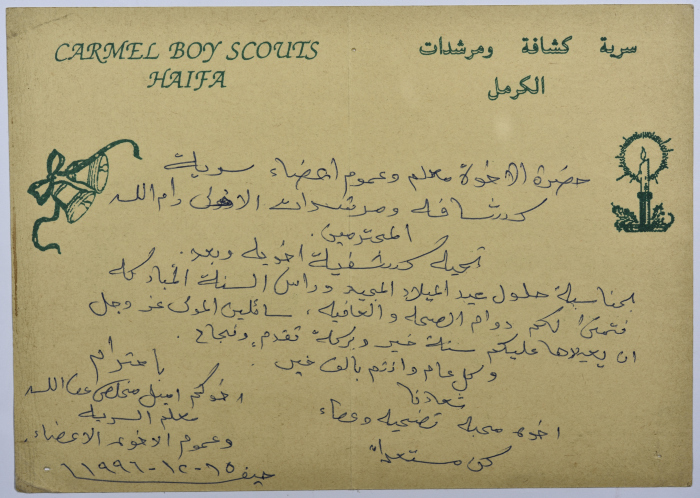 CARMEL BOY SCOUTS
HAIFA
سرية كشافة ومرشدات
الكرمل
حضرة الاخوة معلم وعموم اعضاء سرية
كشافة ومرشدات الاولى رام الله
المحترمين.
تحية كشفية اخوية وبعد.
بمناسبة حلول عيد الميلاد المجيد وراس السنة المباركة
نتمنى لكم دوام الصحة والعافية، سائلين المولى عز وجل
ان يعيدها عليكم سنة خير وبركة تقدم ونجاح.
وكل عام وانتم بالف خير.
باحترام
اخوكم اميل مخلص عطاالله
معلم السرية
وعموم الاخوة الاعضاء
حيفا ١٥-١٢-١٩٩٦
شعارنا
اخوة محبة تضحية وعطاء
كن مستعداً